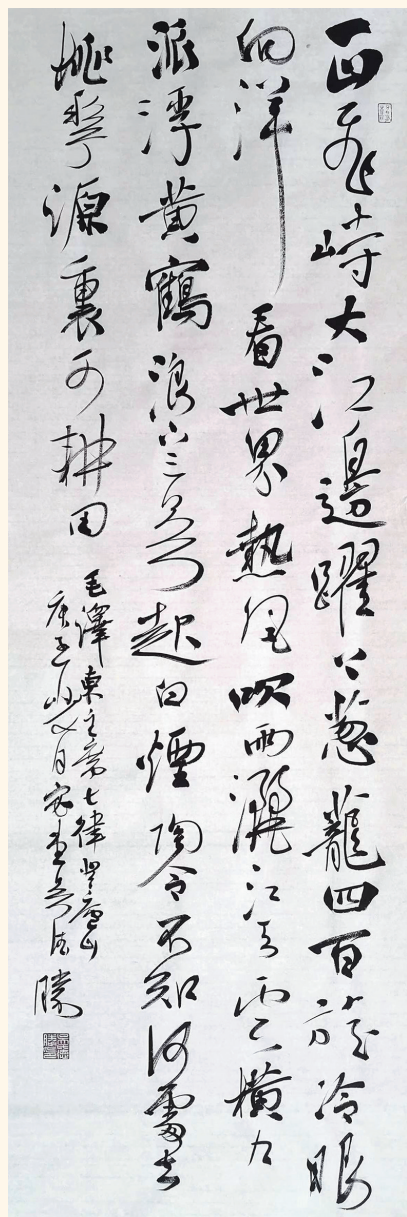 一山飛峙大江邊躍上葱蘢四百旋冷眼
向洋看世界熱風吹雨灑江天雲橫九
派浮黄鶴浪下三吳起白煙陶令不知何處去
桃花源裏可耕田
毛澤東主席七律登廬山
庚子 月 勝